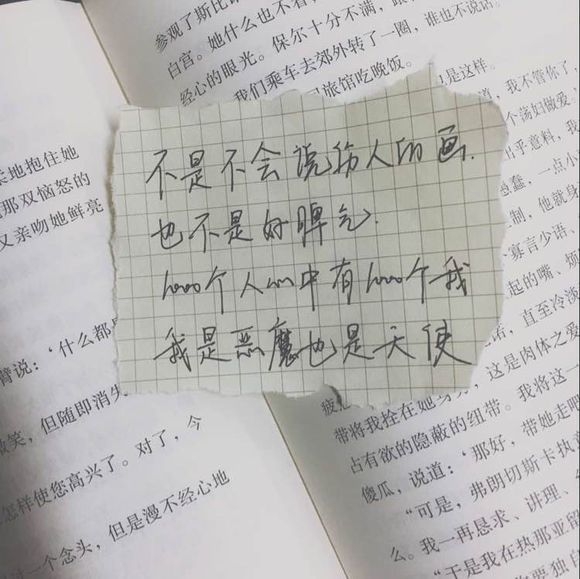 参观了斯比
白宫。她什么也不看
经心的眼光。保尔十分不满，跟
我们乘车去郊外转了一圈，谁也不说话。
旅馆吃晚饭。
不是不会说伤人的画.
也不是好脾气.
1000个人心中有1000个我
我是恶魔也是天使
地抱住她
那双恼怒的
又亲吻她鲜亮
说：‘什么都
微笑，但随即消失
怎样使您高兴了。对了，今
一个念头，但是漫不经心地
也是这样。
，我不管你了，
个荡妇做爱，
出乎意料，我
愚蠢，一点小
制，他就身
寡言少语、
起的嘴、烦
，直至冷淡
，这是肉体之爱
带将我拴在她
占有欲的隐蔽的纽带。我将这一
傻瓜，说道：‘那好，带她走吧
“可是，弗朗切斯卡执
么。我一再恳求、讲理、
“于是我在热那亚留
要独自